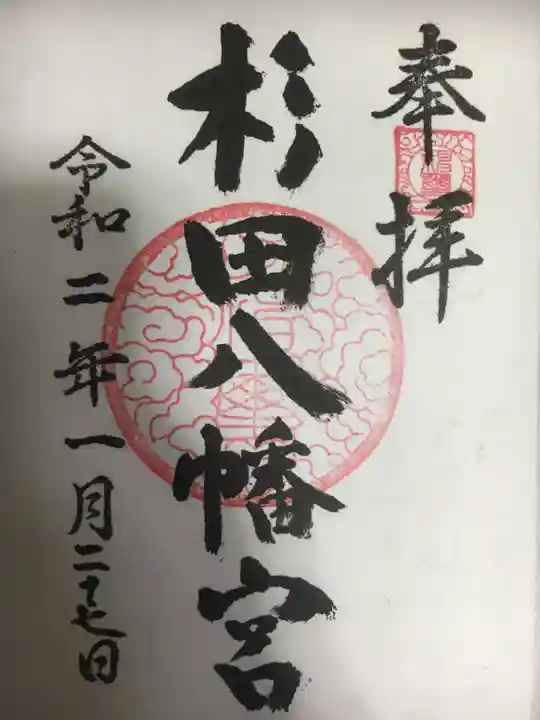 奉拝
杉田八幡宮
令和二年一月二十七日